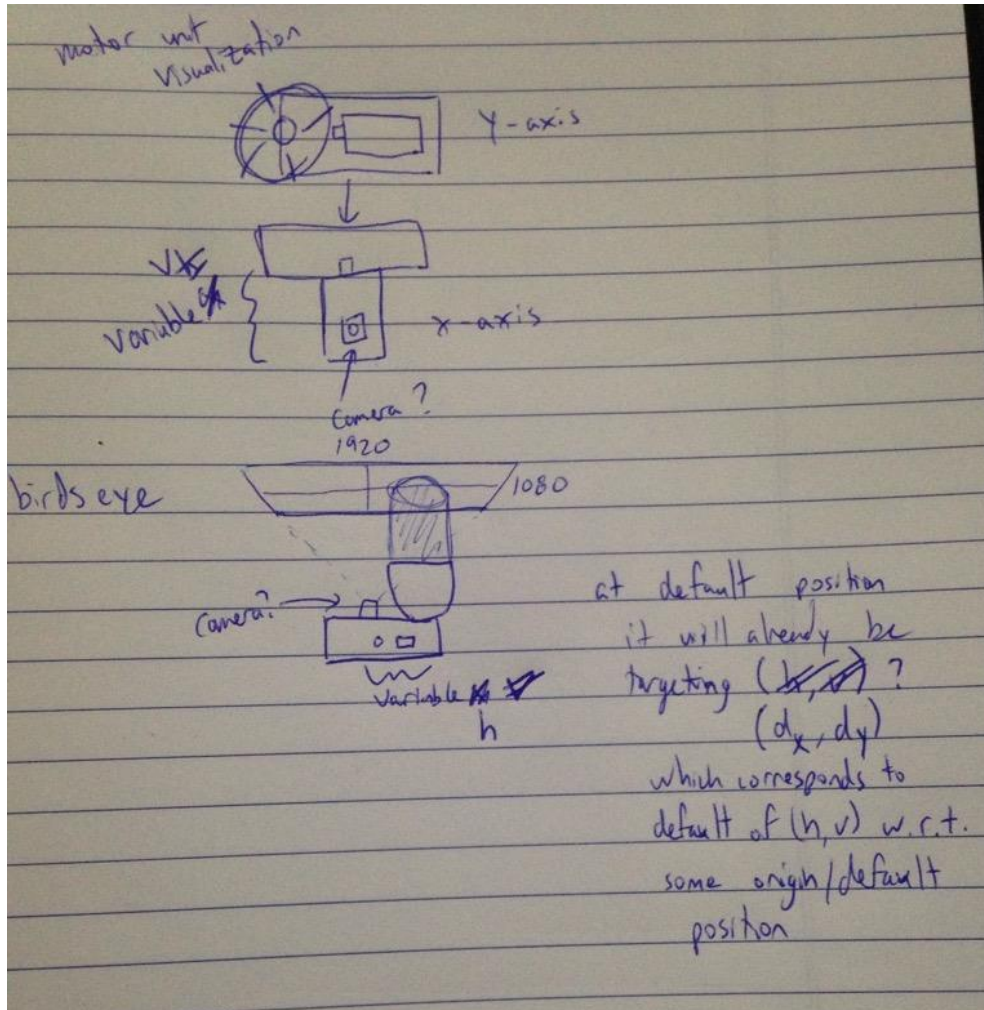 motor unit
visualization
Y-axis
variable
x-axis
Camera ?
1920
birds eye
1080
Camera?
variable
h
at default position
it will already be
targeting ?
(dx, dy)
which corresponds to
default of (h, v) w.r.t.
some origin/default
position